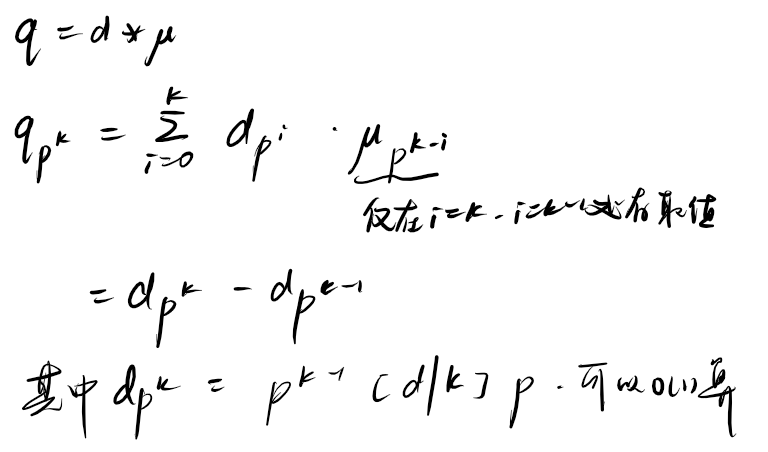 q = d * μ
q_{p^k} = \sum_{i=0}^{k} d_{p^i} · μ_{p^{k-i}}
仅在i=k、i=k-1处有取值
= d_{p^k} - d_{p^{k-1}}
其中 d_{p^k} = p^{k-1} [d|k] p . 可以O(1)算